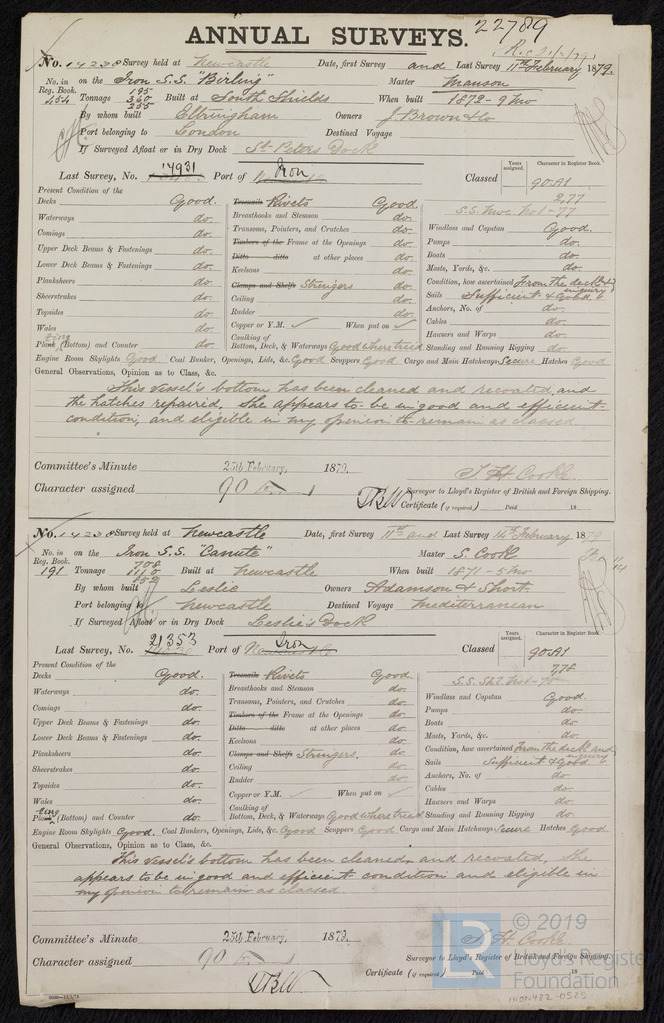 22789
ANNUAL SURVEYS.
No. 14238 Survey held at Newcastle Date, first Survey and Last Survey 11th February 1879.
No. in on the Iron S.S. "Birling" Master Manson
Reg. Book. 195
454 Tonnage 360 Built at South Shields When built 1872-9 mo
255
By whom built Eltringham Owners J. Brown & Co
Port belonging to London Destined Voyage
If Surveyed Afloat or in Dry Dock St Peters Dock
Last Survey, No. 14931 Port of Iron Classed 90A1
Years assigned. Character in Register Book.
2,77
Present Condition of the
Decks Good. Treenails Rivets Good S.S. No 1-77
Waterways do. Breasthooks and Stemson do. Windlass and Capstan Good.
Comings do. Transoms, Pointers, and Crutches do. Pumps do.
Upper Deck Beams & Fastenings do. Timbers of the Frame at the Openings do. Boats do.
Lower Deck Beams & Fastenings do. Ditto ditto at other places do. Masts, Yards, &c. do.
Planksheers do. Keelsons do. Condition, how ascertained From the deck & inquiry
Sheerstrakes do. Clamps and Shelfs Stringers do. Sails Sufficient & Good
Topsides do. Ceiling do. Anchors, No. of do.
Wales do. Rudder do. Cables do.
Copper or Y.M. ✓ When put on ✓ Hawsers and Warps do.
Plating (Bottom) and Counter do. Caulking of Bottom, Deck, & Waterways Good where tried Standing and Running Rigging do.
Engine Room Skylights Good Coal Bunker, Openings, Lids, &c. Good Scuppers Good Cargo and Main Hatchways Secure Hatches Good
General Observations, Opinion as to Class, &c.
This vessel's bottom has been cleaned and recoated, and
the hatches repaired. She appears to be in good and efficient
condition, and eligible in my opinion to remain as classed.
Committee's Minute 25th February, 1879.
Character assigned 90
T. H. Cooke
Surveyor to Lloyd's Register of British and Foreign Shipping.
Certificate (if required) Paid 18
No. 14238 Survey held at Newcastle Date, first Survey 11th and Last Survey 14th February 1879
No. in on the Iron S.S. "Canute" Master S. Cook
Reg. Book. 708
191 Tonnage 1118 Built at Newcastle When built 1871-5 mo
852
By whom built Leslie Owners Adamson & Short
Port belonging to Newcastle Destined Voyage Mediterranean
If Surveyed Afloat or in Dry Dock Leslie's Dock
Last Survey, No. 21353 Port of Iron Classed 90A1
Years assigned. Character in Register Book.
7,78
Present Condition of the
Decks Good. Treenails Rivets Good
Waterways do. Breasthooks and Stemson do. Windlass and Capstan Good.
Comings do. Transoms, Pointers, and Crutches do. Pumps do.
Upper Deck Beams & Fastenings do. Timbers of the Frame at the Openings do. Boats do.
Lower Deck Beams & Fastenings do. Ditto ditto at other places do. Masts, Yards, &c. do.
Planksheers do. Keelsons do. Condition, how ascertained From the deck and inquiry
Sheerstrakes do. Clamps and Shelfs Stringers. do. Sails Sufficient & Good
Topsides do. Ceiling do. Anchors, No. of do.
Wales do. Rudder do. Cables do.
Copper or Y.M. ✓ When put on ✓ Hawsers and Warps do.
Plating (Bottom) and Counter do. Caulking of Bottom, Deck, & Waterways Good where tried Standing and Running Rigging do.
Engine Room Skylights Good. Coal Bunkers, Openings, Lids, &c. Good Scuppers Good Cargo and Main Hatchways Secure Hatches Good
General Observations, Opinion as to Class, &c.
This vessel's bottom has been cleaned and recoated. She
appears to be in good and efficient condition and eligible in
my opinion to remain as classed.
Committee's Minute 25th February, 1879.
Character assigned 90
T. H. Cooke
Surveyor to Lloyd's Register of British and Foreign Shipping.
Certificate (if required) Paid 18
LR © 2019
Lloyd's Register
Foundation